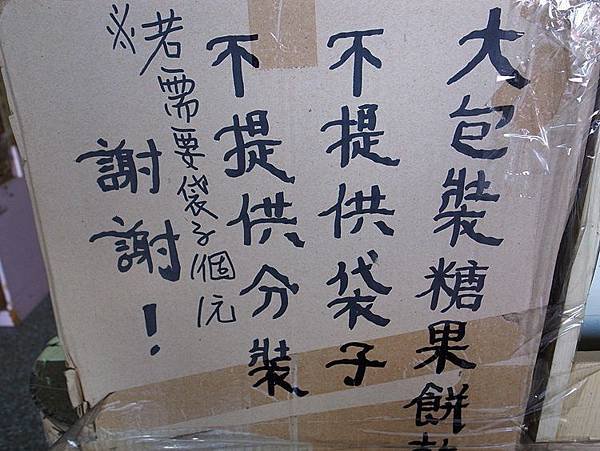 大包裝糖果餅乾
不提供袋子
不提供分裝
※若需要袋子1個1元
謝謝!